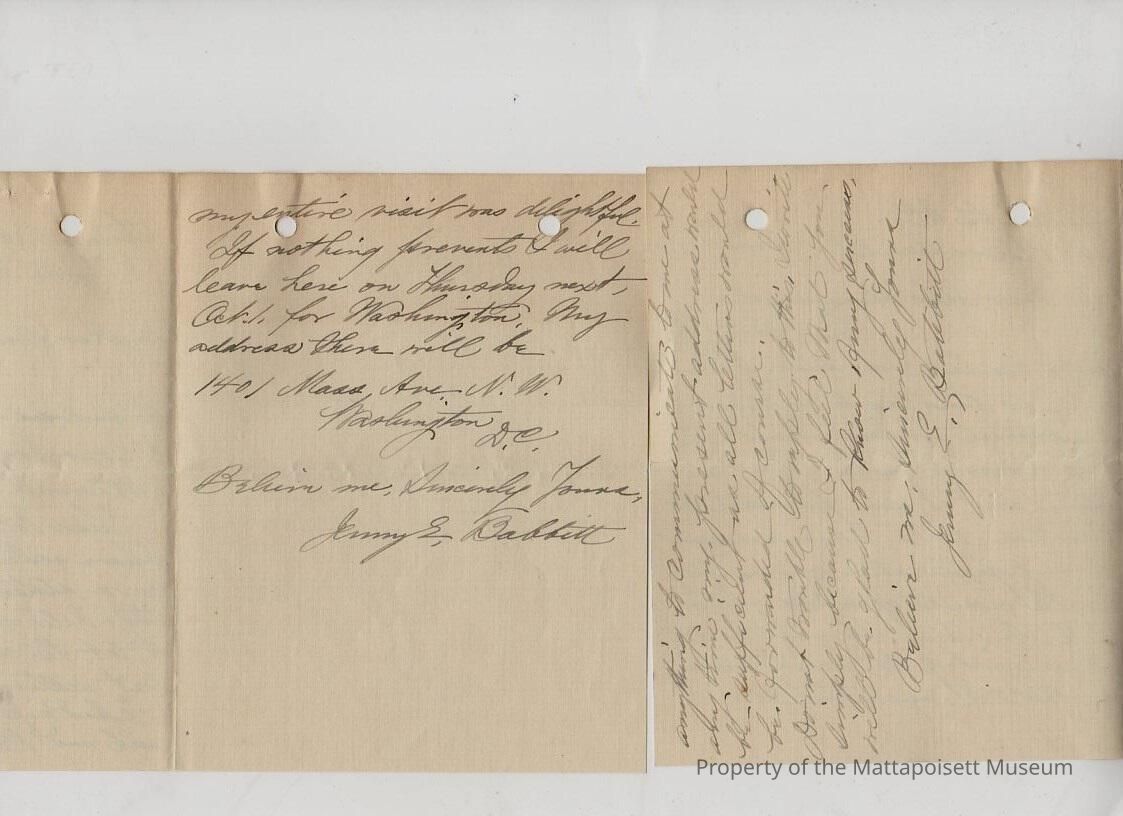 my entire visit was delightful.
If nothing prevents I will
leave here on Thursday next,
Oct. 1. for Washington. My
address there will be
1401 Mass. Ave. N. W.
Washington
D.C.
Believe me, Sincerely Yours,
Jenny E. Babbitt
anything to communicate to me at
any time my present address would
be sufficient as all letters would
be forwarded of course.
Do not trouble to reply to this, I write
simply because I feel that you
will be glad to know. Again,
Believe me, Sincerely Yours
Jenny E. Babbitt
Property of the Mattapoisett Museum